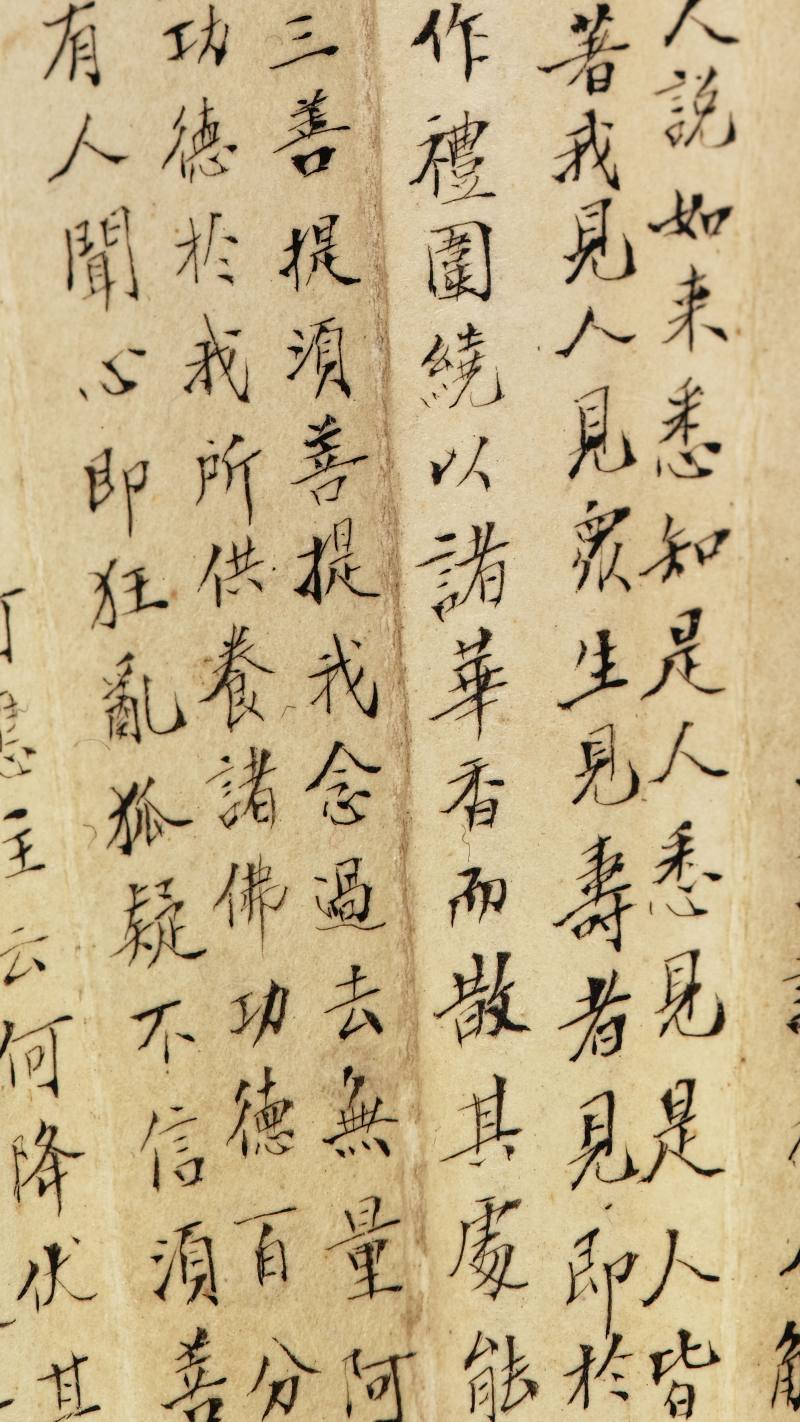 人説如来悉知是人悉見是人皆
著我見人見衆生見壽者見即於
作禮圍繞以諸華香而散其處能
三菩提須菩提我念過去無量阿
功德於我所供養諸佛功德百分
有人聞心即狂亂狐疑不信須菩
云何降伏其